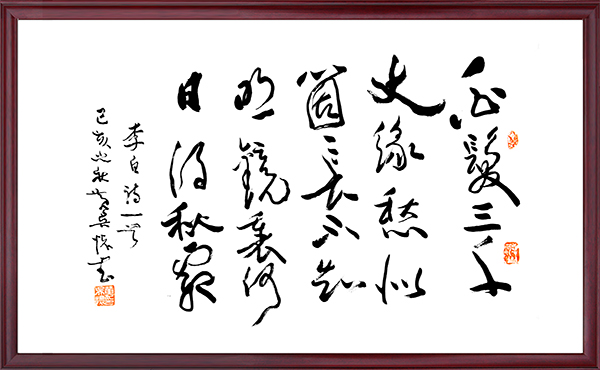 白髮三千
丈緣愁似
箇長不知
明鏡裏何
日得秋霜
李白詩一首
己亥之秋